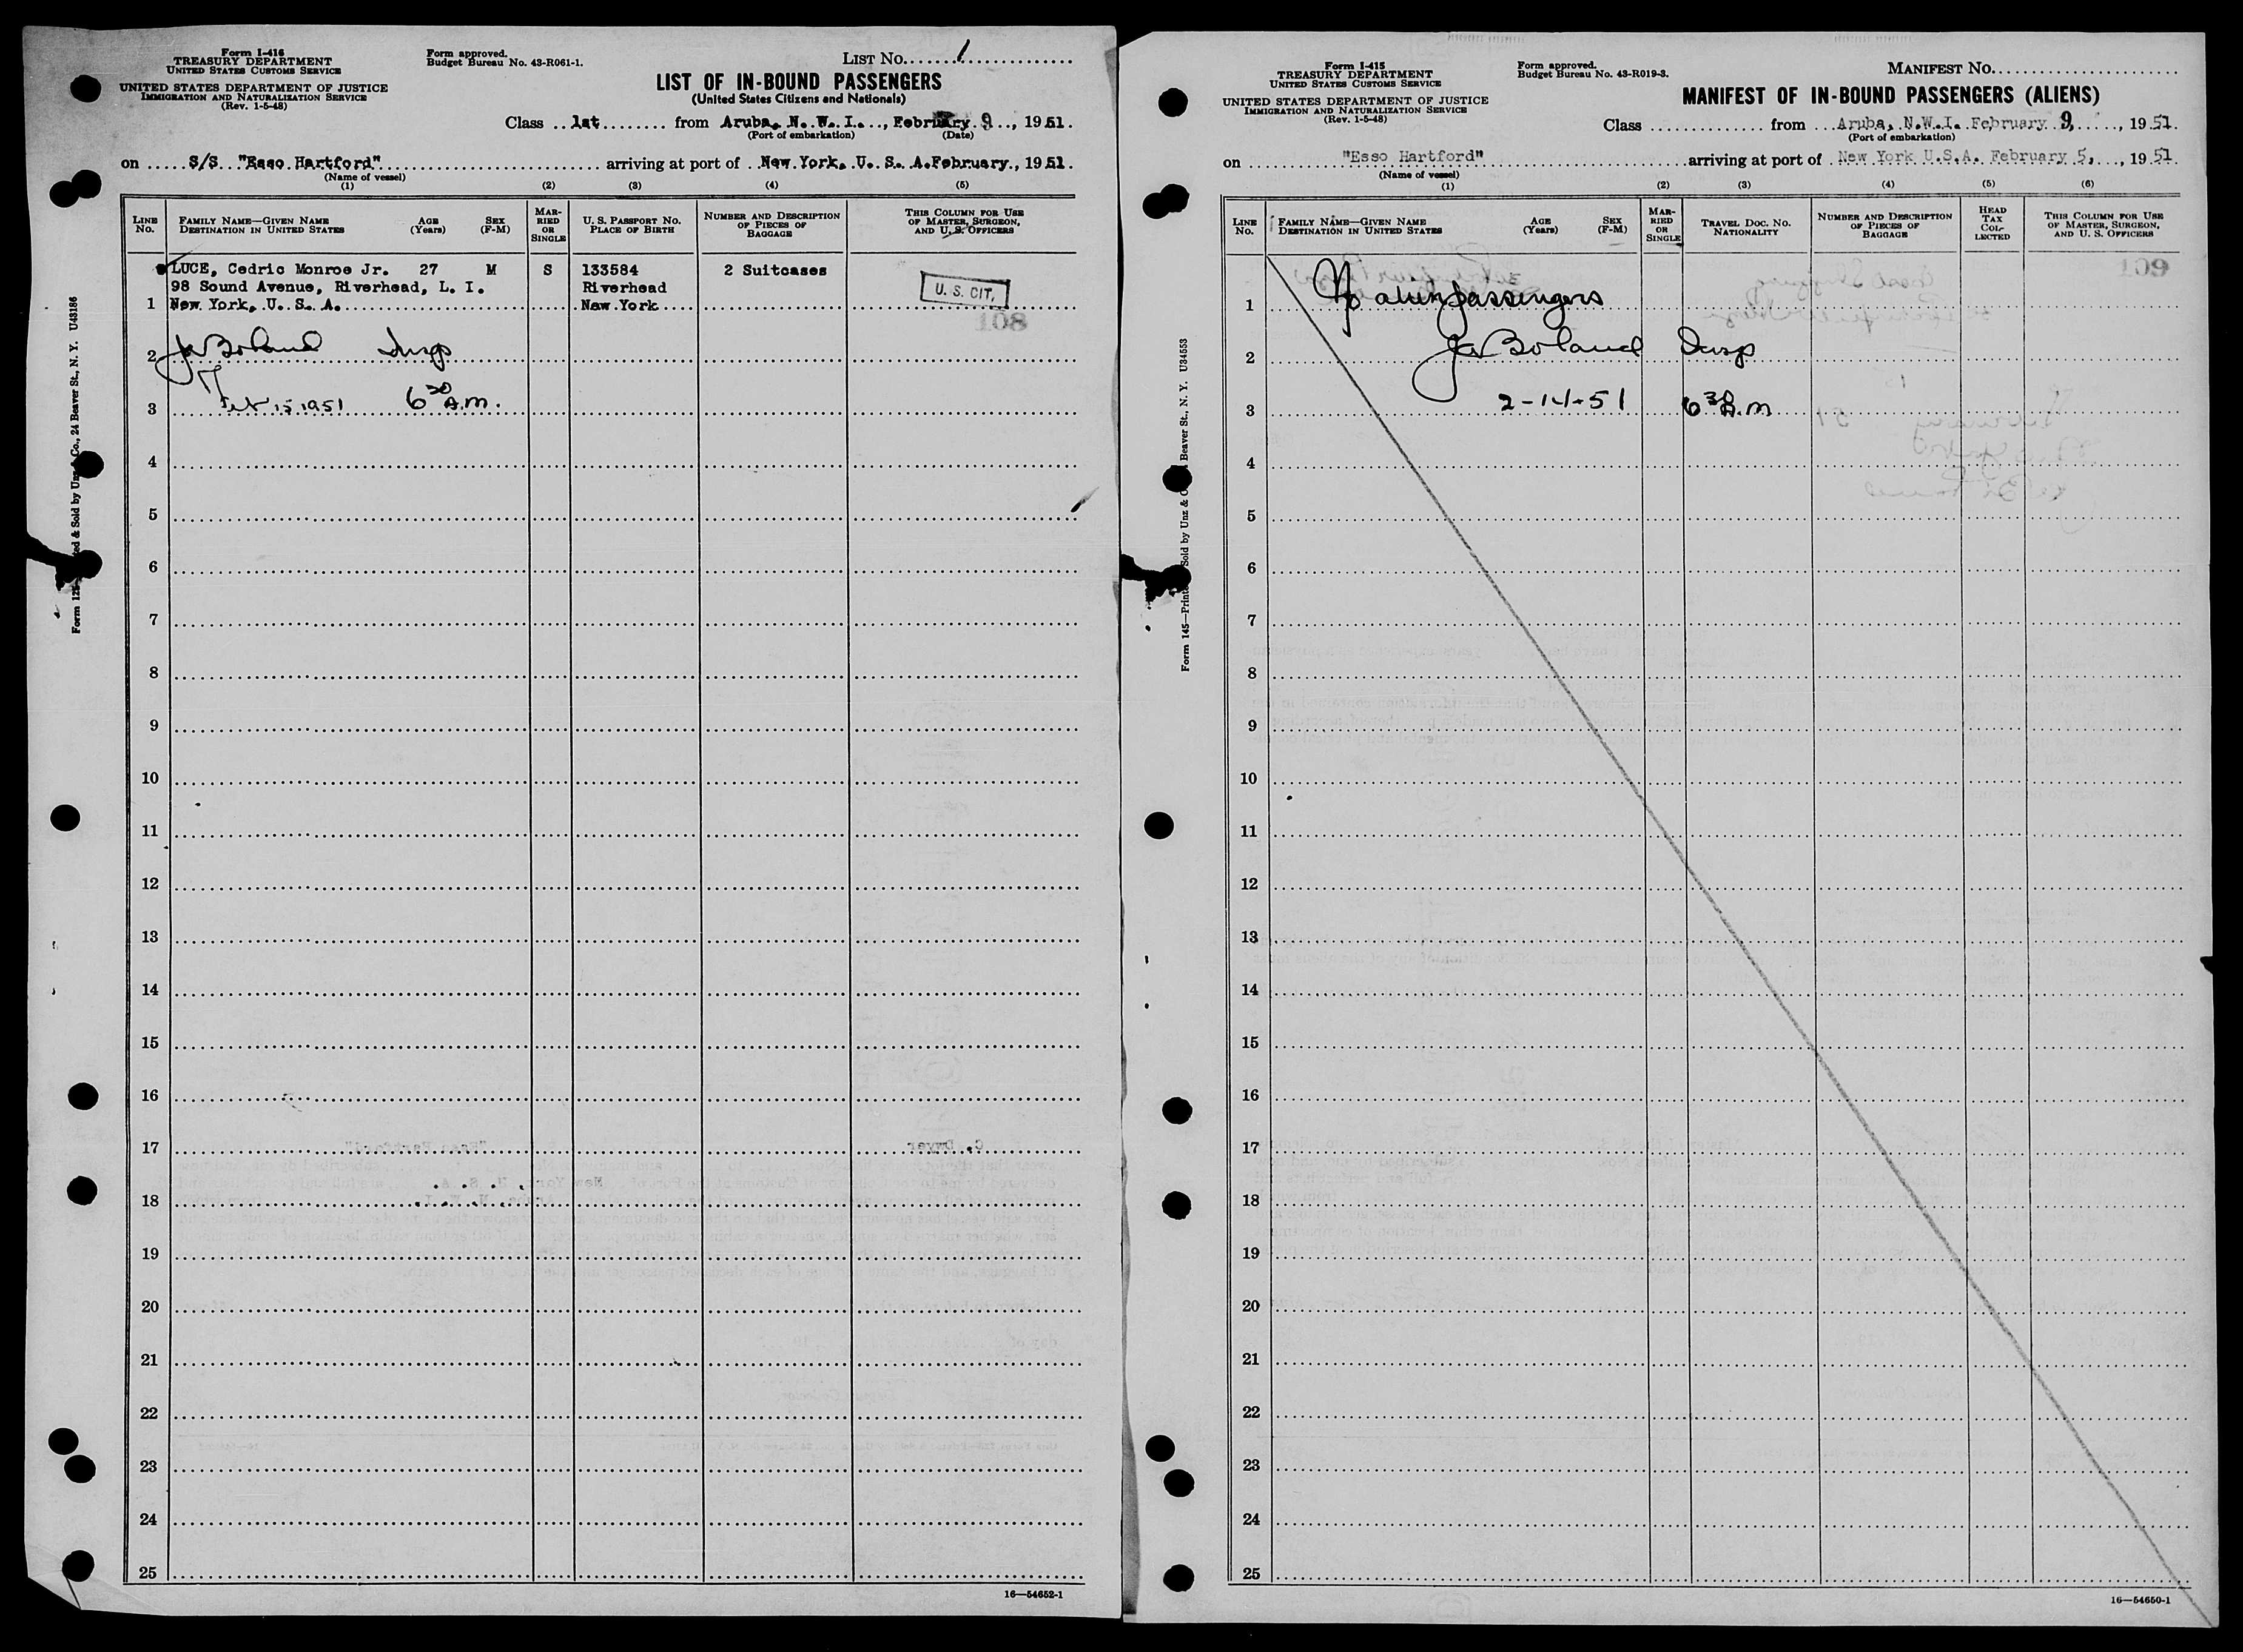 Form I-416
TREASURY DEPARTMENT
UNITED STATES CUSTOMS SERVICE
UNITED STATES DEPARTMENT OF JUSTICE
IMMIGRATION AND NATURALIZATION SERVICE
(Rev. 1-5-48)
Form approved.
Budget Bureau No. 43-R061-1.
LIST No. 1
LIST OF IN-BOUND PASSENGERS
(United States Citizens and Nationals)
Class 1st from Aruba, N. W. I., February 9, 1951.
(Port of embarkation) (Date)
on S/S. "Esso Hartford" arriving at port of New York, U. S. A. February, 1951.
(Name of vessel)
(1) (2) (3) (4) (5)
LINE No.
FAMILY NAME—GIVEN NAME AGE SEX
DESTINATION IN UNITED STATES (Years) (F-M)
MARRIED OR SINGLE
U. S. PASSPORT NO.
PLACE OF BIRTH
NUMBER AND DESCRIPTION OF PIECES OF BAGGAGE
THIS COLUMN FOR USE OF MASTER, SURGEON, AND U. S. OFFICERS
LUCE, Cedric Monroe Jr. 27 M S 133584 2 Suitcases
98 Sound Avenue, Riverhead, L. I. Riverhead U. S. CIT.
1 New York, U. S. A. New York
108
2 Boland Insp
3 Feb 15 1951 6 30 A.M.
4
5
6
7
8
9
10
11
12
13
14
15
16
17
18
19
20
21
22
23
24
25
16—54652-1
Co., 24 Beaver St., N. Y. U43186
Form I-415
TREASURY DEPARTMENT
UNITED STATES CUSTOMS SERVICE
UNITED STATES DEPARTMENT OF JUSTICE
IMMIGRATION AND NATURALIZATION SERVICE
(Rev. 1-5-48)
Form approved.
Budget Bureau No. 43-R019-3.
MANIFEST No.
MANIFEST OF IN-BOUND PASSENGERS (ALIENS)
Class from Aruba, N.W.I. February 9, 1951.
(Port of embarkation)
on "Esso Hartford" arriving at port of New York U.S.A. February 5, 1951.
(Name of vessel)
(1) (2) (3) (4) (5) (6)
LINE No.
FAMILY NAME—GIVEN NAME AGE SEX
DESTINATION IN UNITED STATES (Years) (F-M)
MARRIED OR SINGLE
TRAVEL DOC. NO.
NATIONALITY
NUMBER AND DESCRIPTION OF PIECES OF BAGGAGE
HEAD TAX COLLECTED
THIS COLUMN FOR USE OF MASTER, SURGEON, AND U. S. OFFICERS
109
1 No alien passengers
2 Boland Insp
3 2-14-51 6 30 A.m
4
5
6
7
8
9
10
11
12
13
14
15
16
17
18
19
20
21
22
23
24
25
16—54650-1
Beaver St., N. Y. U34553